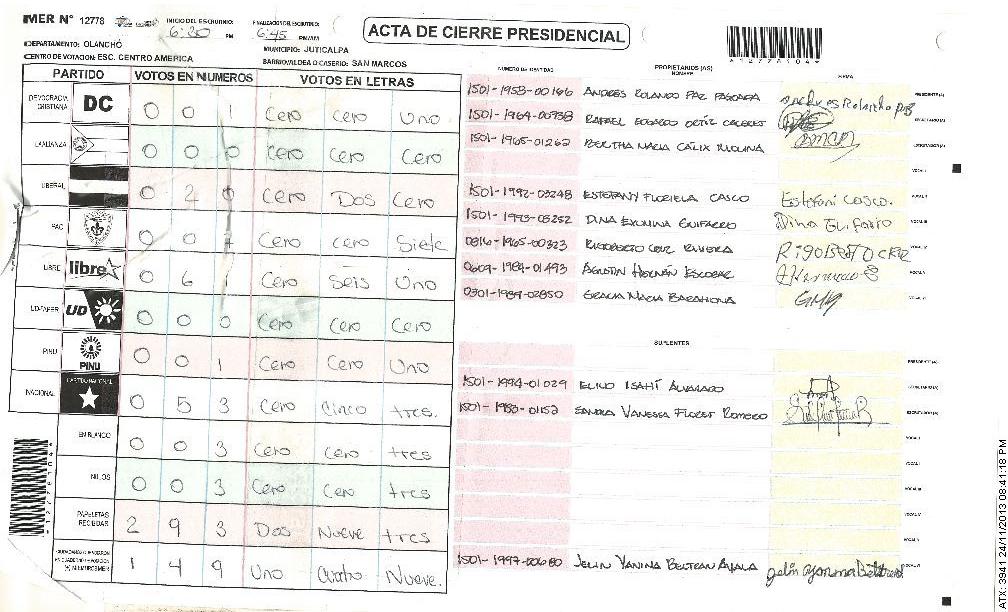 MER N° 12778
INICIO DEL ESCRUTINIO: 6:20 PM
FINALIZACION DEL ESCRUTINIO: 6:45 PM/AM
ACTA DE CIERRE PRESIDENCIAL
*12778104*
DEPARTAMENTO: OLANCHO
MUNICIPIO: JUTICALPA
CENTRO DE VOTACION: ESC. CENTRO AMERICA
BARRIO/ALDEA O CASERIO: SAN MARCOS
PARTIDO VOTOS EN NUMEROS VOTOS EN LETRAS
DEMOCRACIA CRISTIANA DC 0 0 1 Cero Cero Uno
0 0 0 Cero Cero Cero
LIBERAL 0 2 0 Cero Dos Cero
PAC 0 0 7 Cero cero Siete
LIBRE libre 0 6 1 Cero Seis Uno
UD-FAPER UD 0 0 0 Cero Cero Cero
PINU PINU 0 0 1 Cero Cero Uno
NACIONAL PARTIDO NACIONAL 0 5 3 Cero Cinco tres.
EN BLANCO 0 0 3 Cero Cero tres
NULOS 0 0 3 Cero Cero tres
PAPELETAS RECIBIDAS 2 9 3 Dos Nueve tres
1 4 9 Uno Cuatro Nueve.
*12778104*
NUMERO DE IDENTIDAD PROPIETARIOS (AS) NOMBRE FIRMA
1501-1953-00166 ANDRES ROLANDO PAZ PRESIDENTE (A)
1501-1964-00938 RAFAEL EDGARDO ORTIZ CACERES SECRETARIO (A)
1501-1965-01262 BERTHA MARIA CALIX MOLINA ESCRUTADOR (A)
VOCAL I
1501-1992-03248 ESTEFANY FLORIELA CASCO Estefani Casco. VOCAL II
DINA GUIFARRO Dina Guifarro VOCAL III
RIGOBERTO CRUZ RIVERA VOCAL IV
0609-1984-01493 AGUSTIN HERNAN ESCOBAR VOCAL V
GRACIA MARIA BARAHONA VOCAL VI
SUPLENTES
PRESIDENTE (A)
1501-1994-01029 ISAHÍ ALVARADO SECRETARIO (A)
1501-1983-01152 SANDRA VANESSA FLORES ROMERO ESCRUTADOR (A)
VOCAL I
VOCAL II
VOCAL III
VOCAL IV
VOCAL V
1501-1997-00680 JELIN YANINA BELTRAN AYALA VOCAL VI
ATX: 3941 24/11/2013 08:41:18 PM